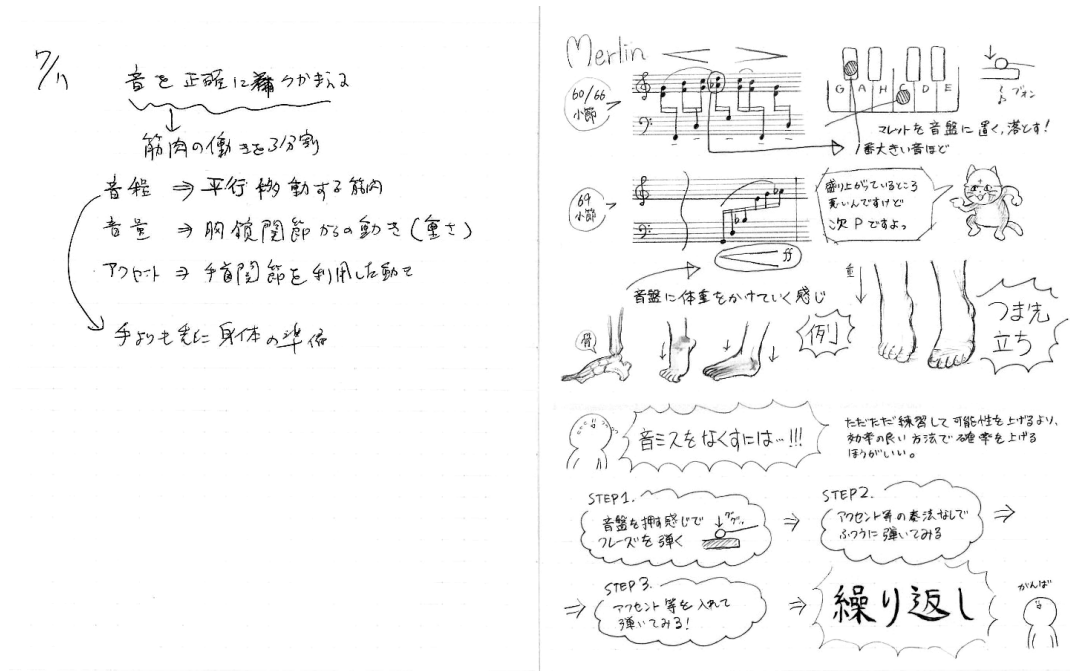 7/17
音を正確につかまえる
筋肉の働きを3分割
音程 ⇒ 平行移動する筋肉
音量 ⇒ 胸鎖関節からの動き(重さ)
アクセント ⇒ 手首関節を利用した動き
手よりも先に身体の準備
Merlin
60/66
小節
G A H C D E
ブォン
マレットを音盤に置く,落とす!
1番大きい音ほど
69
小節
ff
盛り上がっているところ
悪いんですけど
次Pですよっ
音盤に体重をかけていく感じ
骨
例
重
つま先
立ち
音ミスをなくすには…!!!
ただただ練習して可能性を上げるより、
効率の良い方法で確率を上げる
ほうがいい。
STEP1.
音盤を押す感じで
フレーズを弾く
ググッ
⇒
STEP2.
アクセント等の奏法なしで
ふつうに弾いてみる
⇒
⇒
STEP3.
アクセント等を入れて
弾いてみる!
⇒
繰り返し
がんば